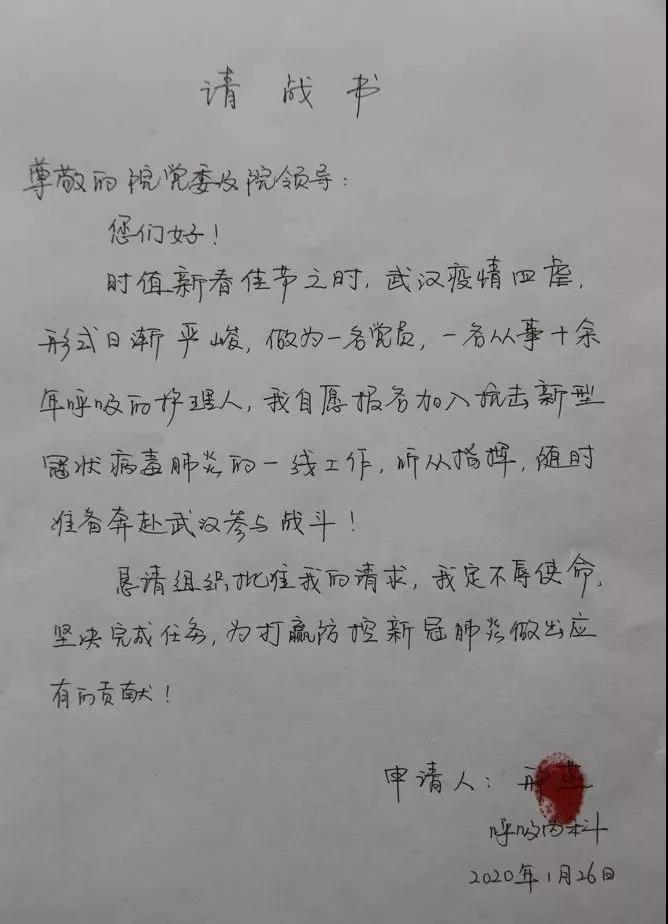 请战书
尊敬的院党委及院领导：
您们好！
时值新春佳节之时，武汉疫情四虐，
形式日渐严峻，做为一名党员，一名从事十余
年呼吸的护理人，我自愿报名加入抗击新型
冠状病毒肺炎的一线工作，听从指挥，随时
准备奔赴武汉参与战斗！
恳请组织批准我的请求，我定不辱使命，
坚决完成任务，为打赢防控新冠肺炎做出应
有的贡献！
申请人：
呼吸内科
2020年1月26日